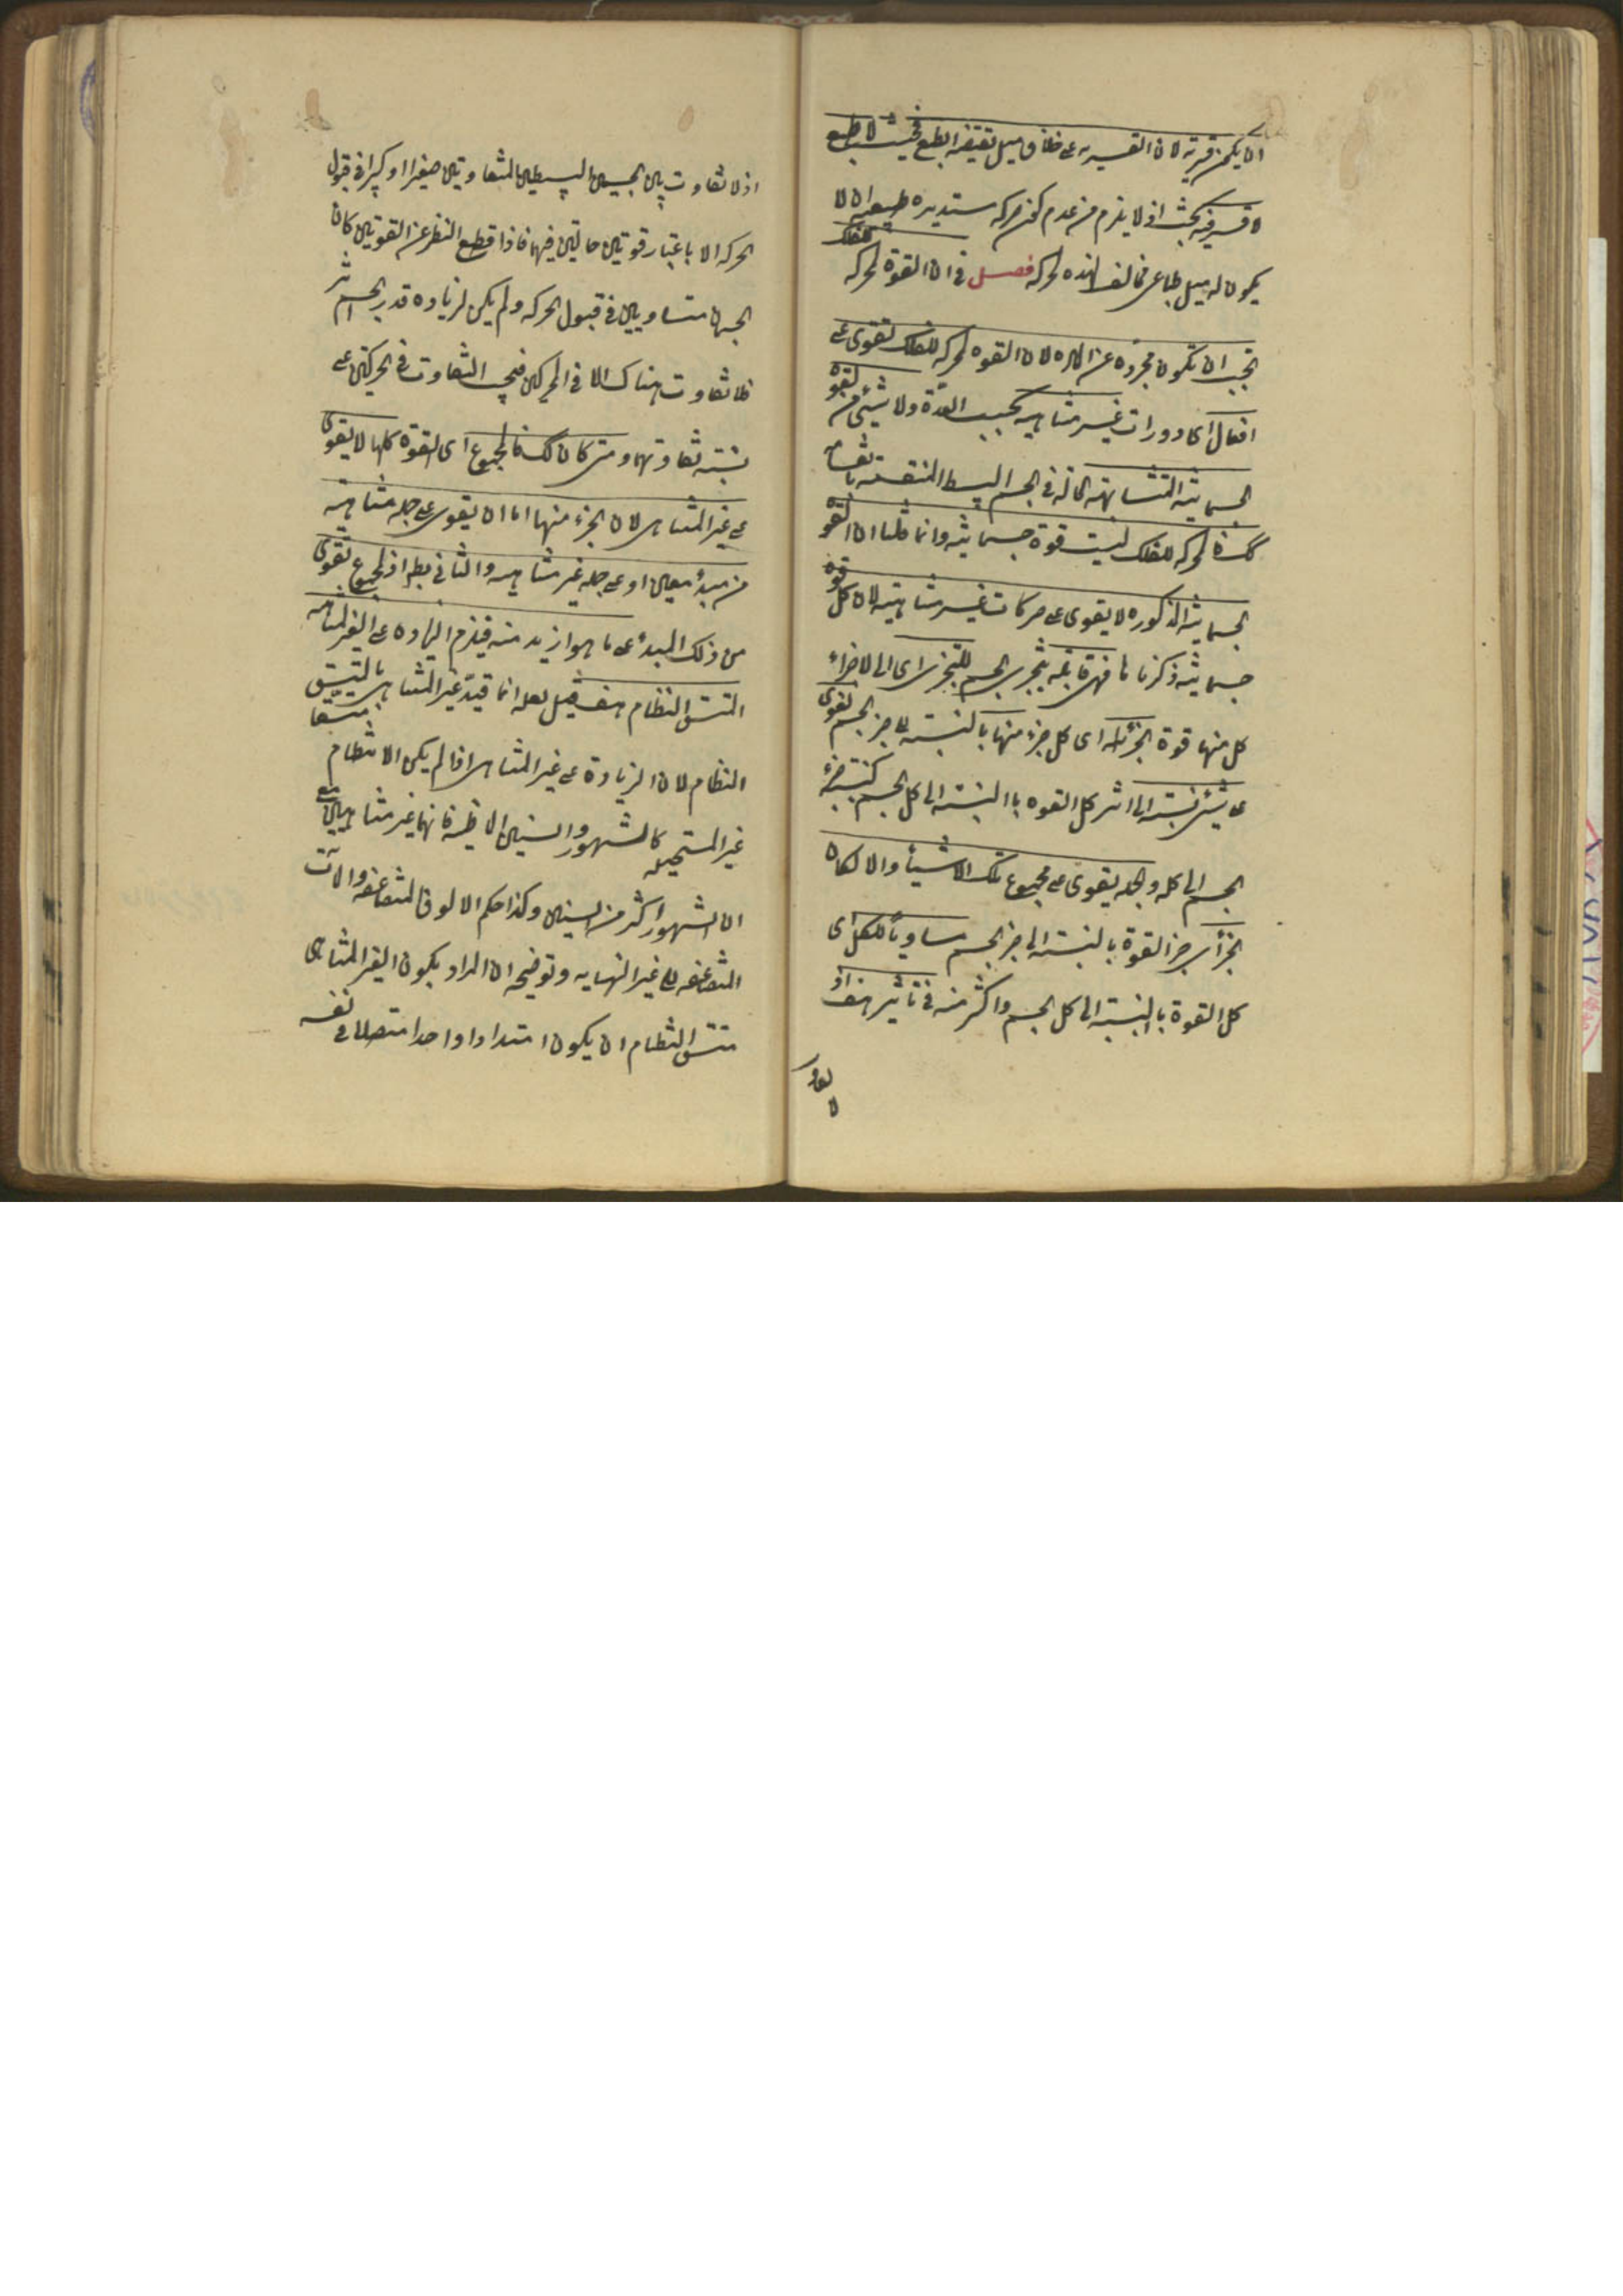 ان يكون قسرية لان القسريه على خلاف ميل يقتضيه الطبع فحيث لا طبع
لا قسر وفيه بحث اذ لا يلزم من عدم كون حركة مستديره طبيعية ان لا
يكون له ميل طباعى مخالف لهذه الحركه فصل فى ان القوة المحركه للفلك
تجب ان تكون مجرده عن الماده لان القوه المحركه للفلك تقوى على
افعال اى دورات غير متناهيه بحسب العدّة ولا شيئ من القوة
الجسمانية المتشابهة الحالّه فى الجسم البسيط المنقسمة بانقسامه
كك فالمحركه للفلك ليست قوة جسمانية وانما قلنا ان القوة
الجسمانية المذكوره لا يقوى على حركات غير متناهية لان كل قوة
جسمانية ذكرناها فهى قابلة بتجزى الجسم للتجزى اى الى الاجزاء
كل منها قوة الجزء اى كل جزء منها بالنسبة الى جزء الجسم تقوى
على شيئ نسبته الى اثر كل القوه بالنسبة الى كل الجسم كنسبة جزء
الجسم الى كله والجمله يقوى على مجموع تلك الاشيأ والا لكان
الجزأ اى جزء القوة بالنسبة الى جزء الجسم مساوياً للكل اى
كل القوة بالنسبة الى كل الجسم واكثر منه فى تأثير هف اذ
اذ لا تفاوت بين الجسمين البسيطين المتفاوتين صغيرا وكبيرا فى قبول
الحركه الا باعتبار قوتين حالتين فيهما فاذا قطع النظر عن القوتين كان
الجسمان متساويين فى قبول الحركه ولم يكن لزياده قدر الجسم اثر
فلا تفاوت هناك الا فى المحركين فيجب التفاوت فى الحركتين على
نسبة تفاوتهما ومتى كان كك فالمجموع اى القوة كلها لا يقوى
على غير المتناهى لان الجزء منها اما ان يقوى على جملة متناهية
من مبدأ معين او على جملة غير متناهيه والثانى بط اذ المجموع تقوى
من ذلك المبدأ على ما هو ازيد منه فيلزم الزياده على الغير المتناهيه
المتسق النظام هف قيل لعله انما قيّد غير المتناهى بالمتسق
النظام لان الزيادة على غير المتناهى اذا لم يكن الانتظام متسقا
غير المستحيله كالشهور والسنين الماضية فانها غير متناهيين مع
ان الشهور اكثر من السنين وكذا حكم الالوف المتضاعفه والمآت
المتضاعفه الى غير النهايه وتوضيحه ان المراد بكون الغير المتناهى
متسق النظام ان يكون امتدادا واحدا متصلا فى نفسه